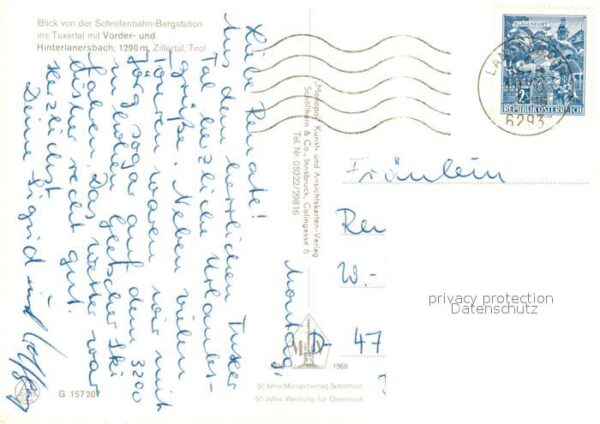 Blick von der Schrofenbahn-Bergstation
ins Tuxertal mit Vorder- und
Hinterlanersbach, 1290 m, Zillertal, Tirol
Montag
Liebe Renate!
Aus dem herrlichen Tuxer
Tal herzliche Urlaubs-
grüße. Neben vielen
Touren waren wir mit
Jörg sogar auf dem 3200
m hohen Gletscher Ski
fahren. Das Wetter war
bisher recht gut.
Herzlichst
Deine Sigrid und
"Monopol" Kunst- und Ansichtskarten-Verlag
Schöllhorn & Co., Innsbruck, Colingasse 6
Tel. Nr. 05222/29816
KLAGENFURT
REPUBLIK ÖSTERREICH
6293
Fräulein
Re
W.-
D- 47
privacy protection
Datenschutz
1968
50 Jahre Monopolverlag Schöllhorn
50 Jahre Werbung für Österreich
G 157207